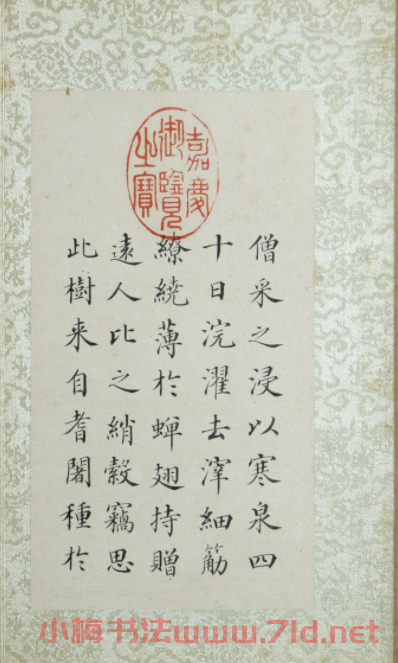 嘉慶御覽之寶
僧采之浸以寒泉四
十日浣濯去滓細觔
繚繞薄於蟬翅持贈
遠人比之綃縠竊思
此樹来自耆闍種於
小梅书法www.7ld.net